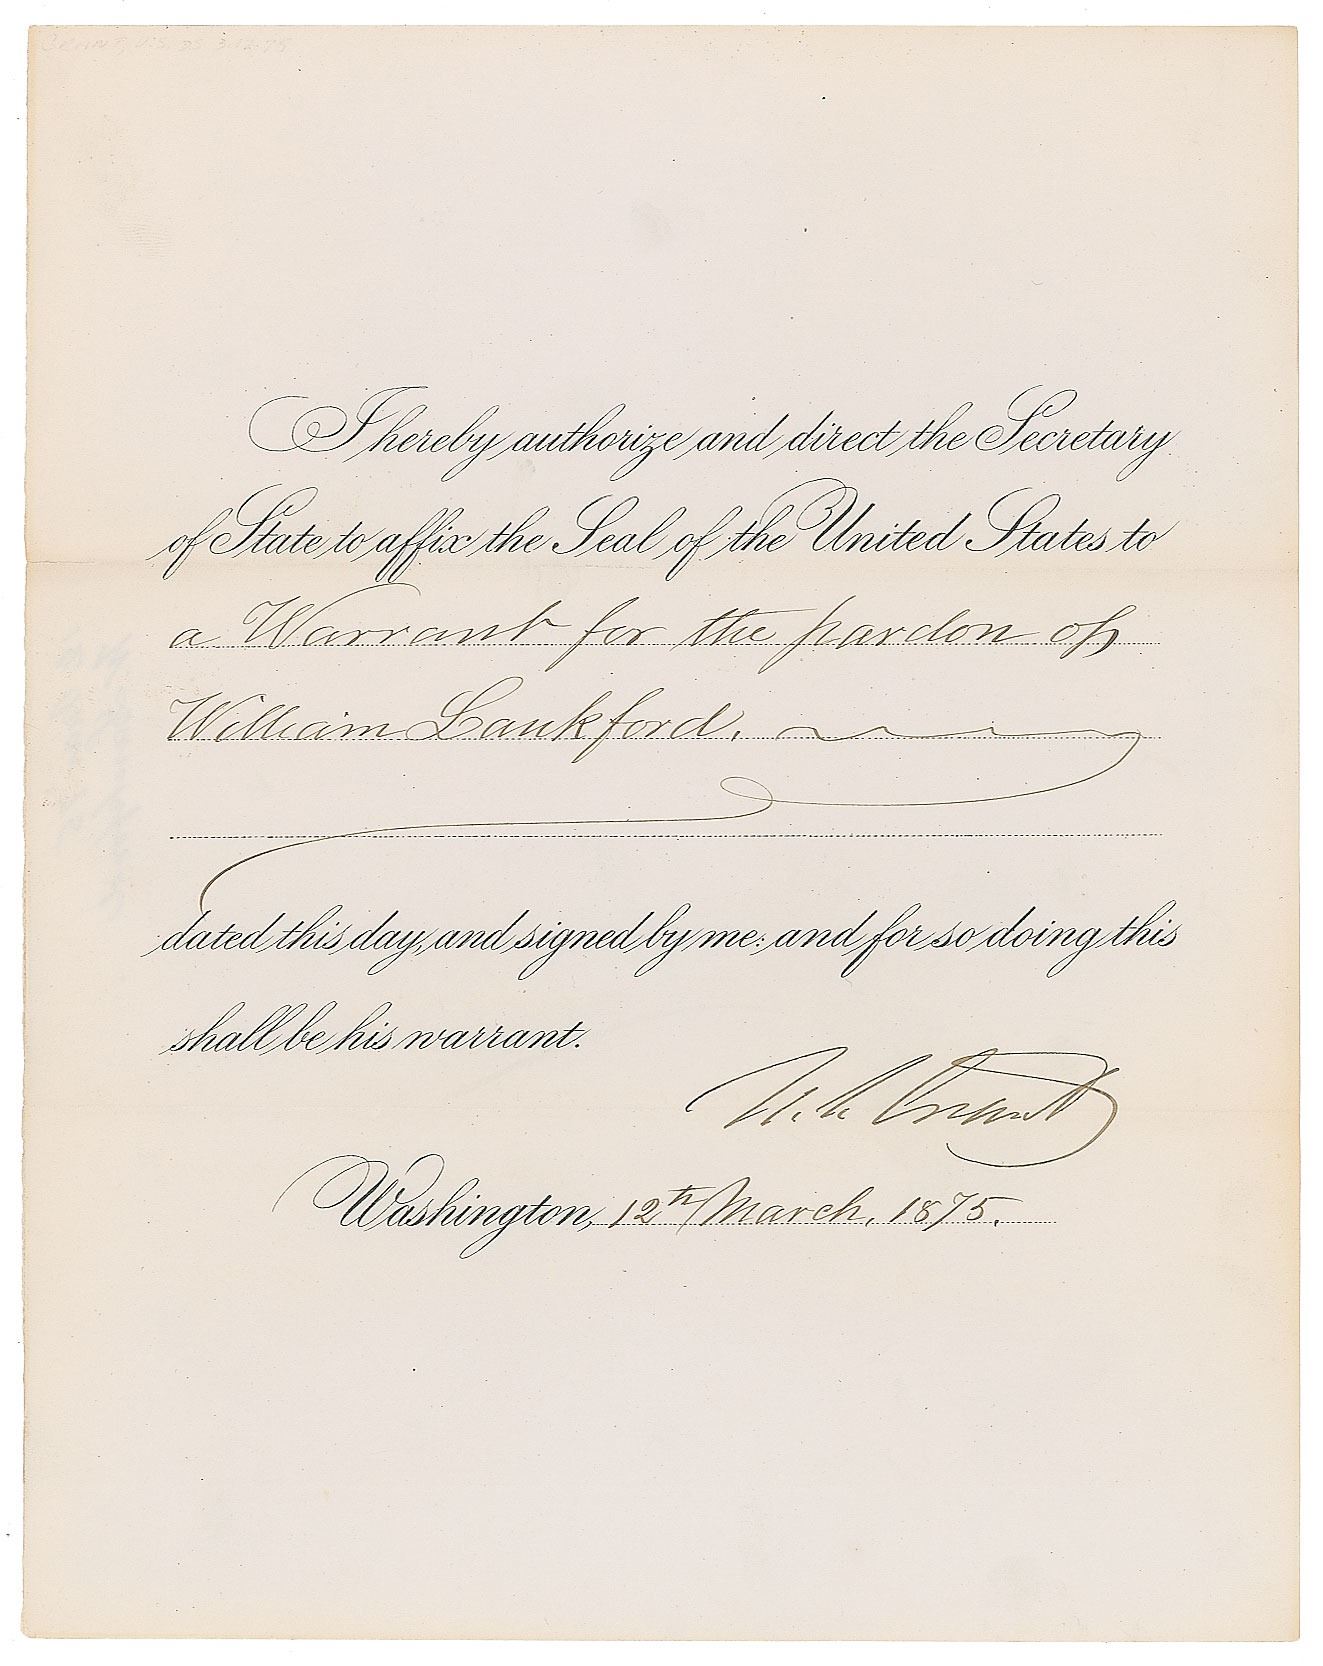 GRANT, U.S. DS 3-12-75
I hereby authorize and direct the Secretary
of State to affix the Seal of the United States to
a Warrant for the pardon of
William Lankford.
dated this day, and signed by me: and for so doing this
shall be his warrant.
U. S. Grant
Washington, 12th March, 1875.